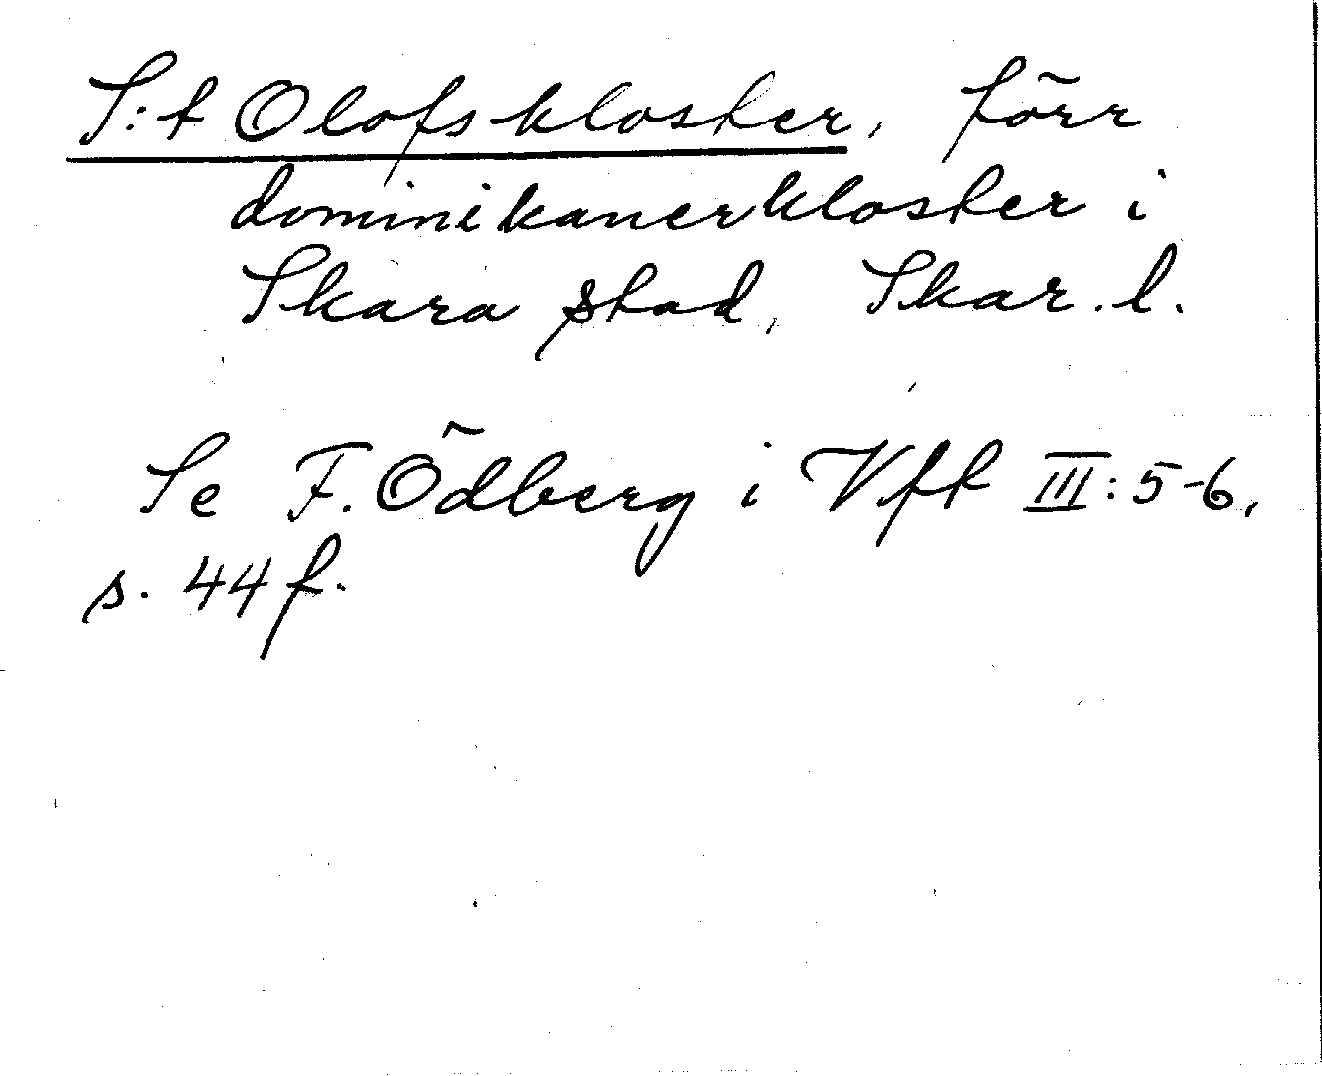 S:t Olofskloster, förr
dominikanerkloster i
Skara stad, Skar. l.
Se F. Ödberg i Vft III:5-6,
s. 44 f.